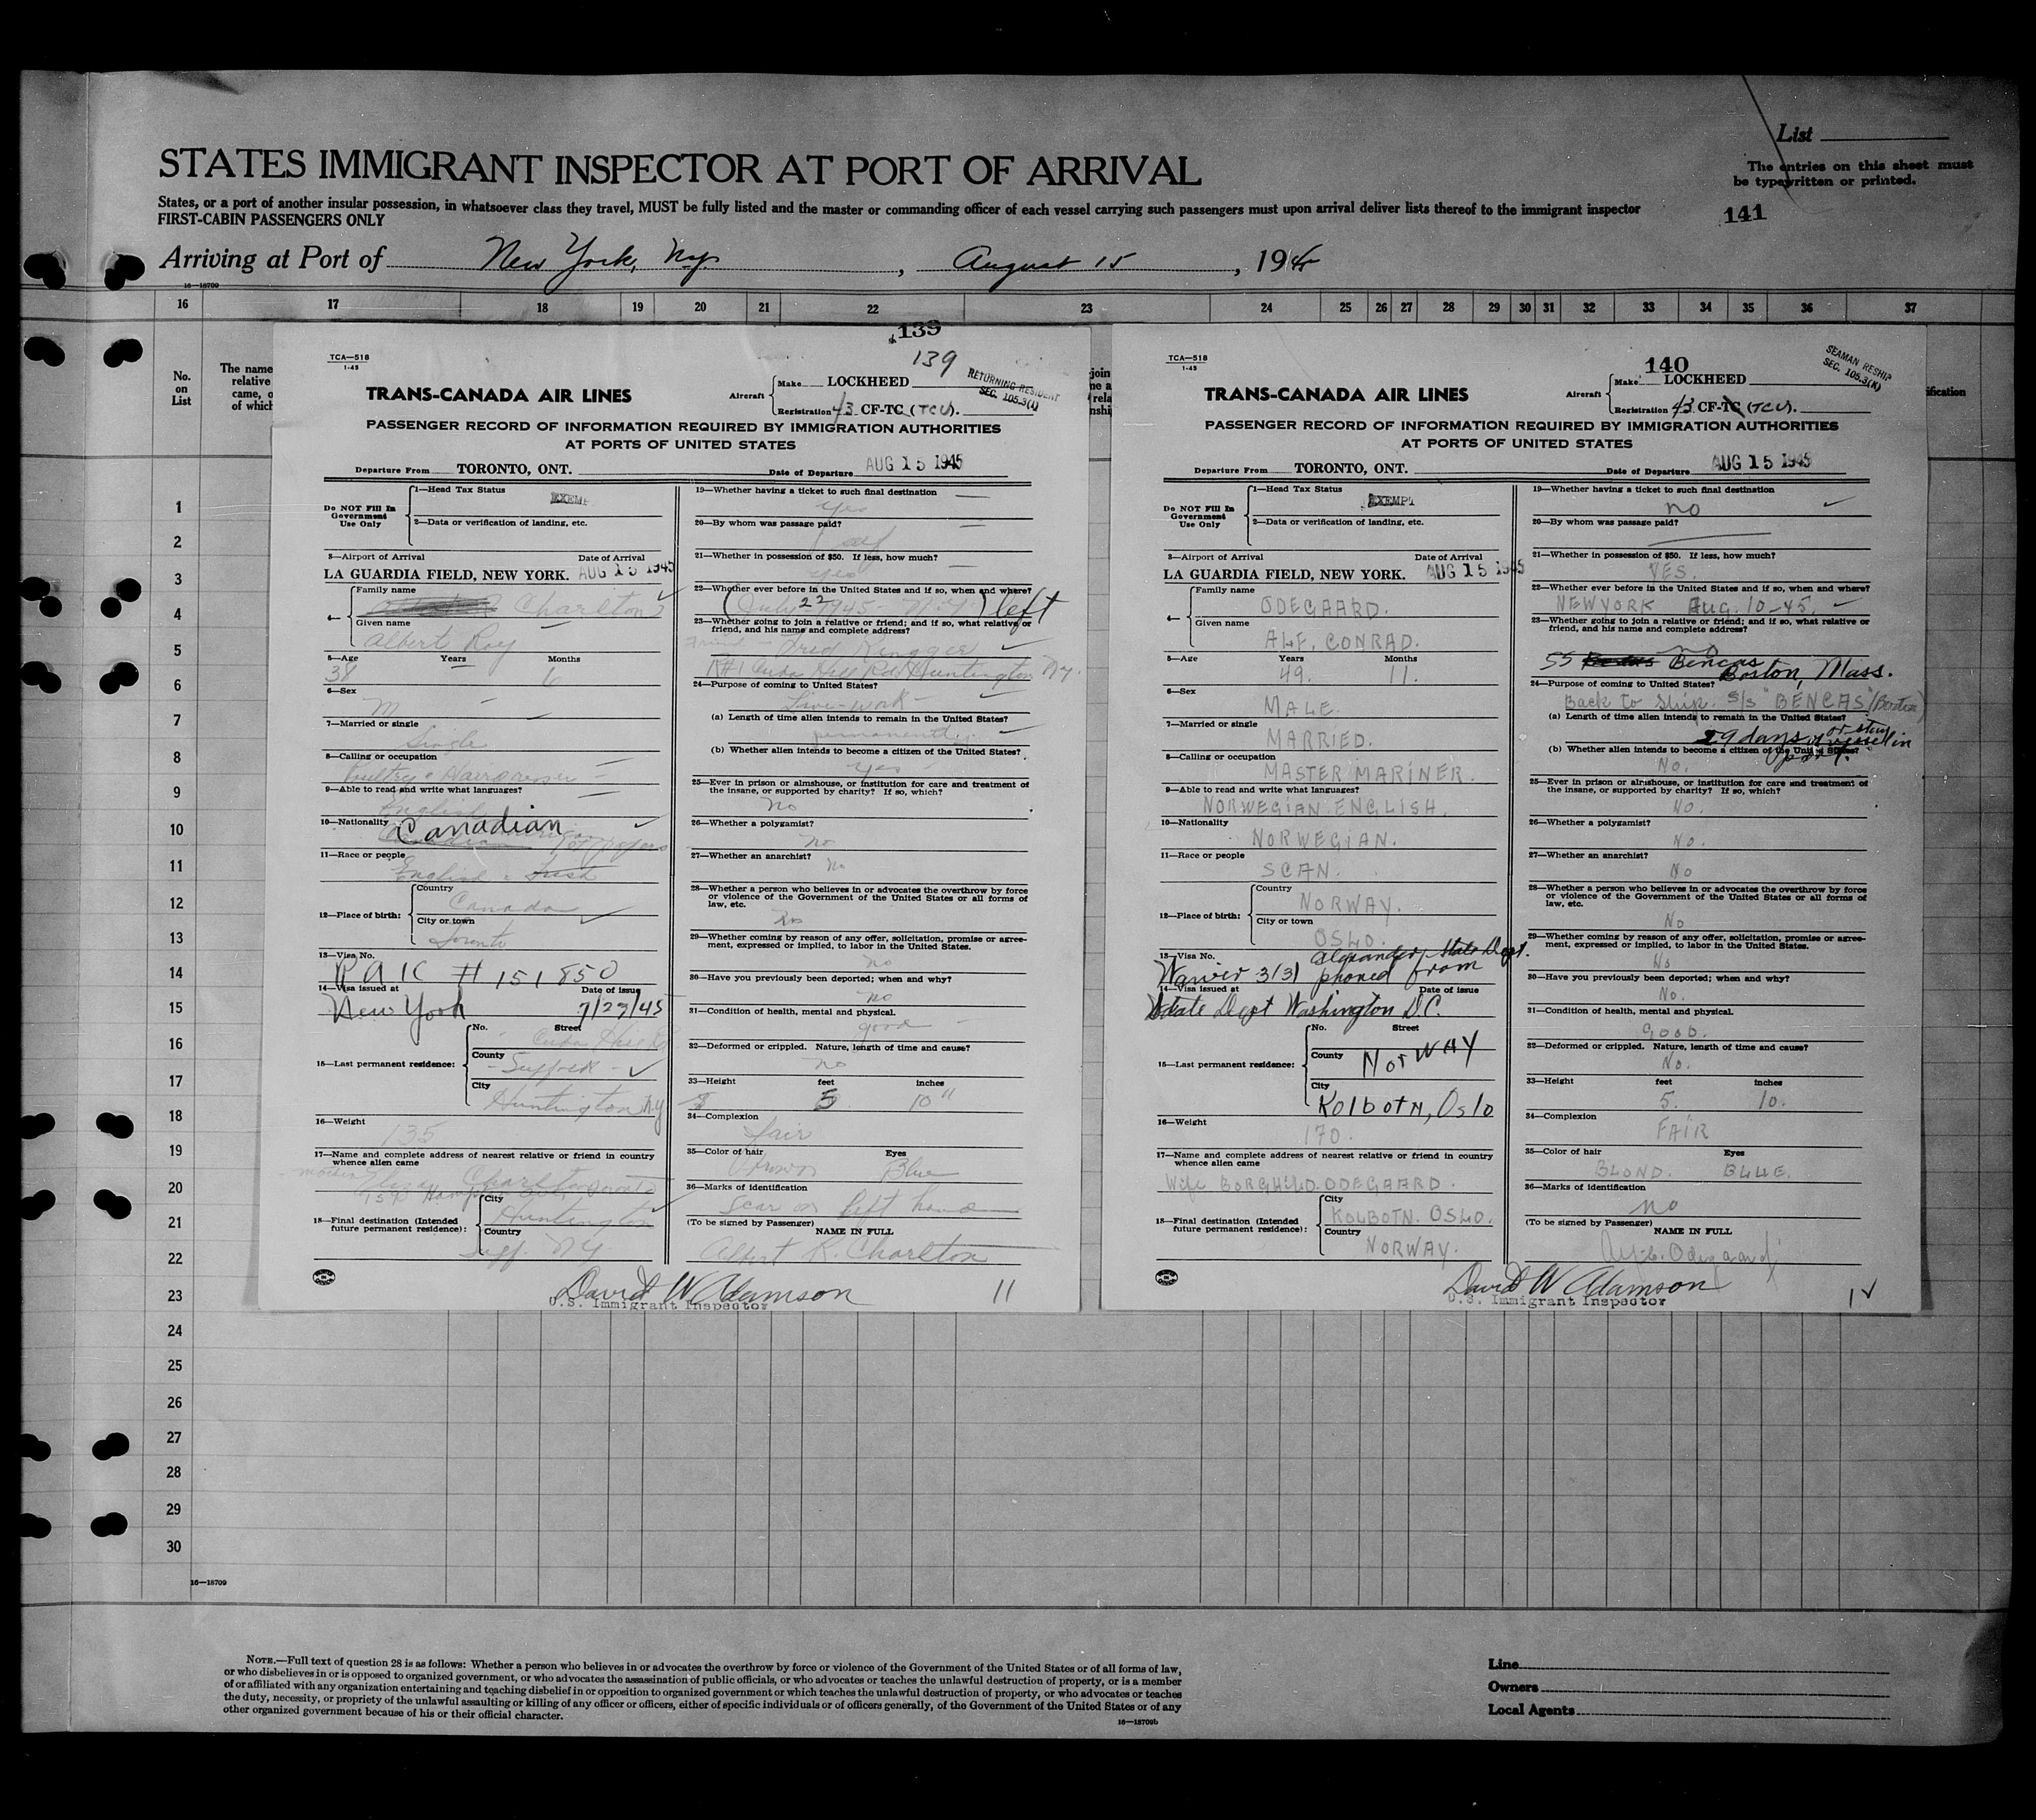 List
The entries on this sheet must
be typewritten or printed.
STATES IMMIGRANT INSPECTOR AT PORT OF ARRIVAL
States, or a port of another insular possession, in whatsoever class they travel, MUST be fully listed and the master or commanding officer of each vessel carrying such passengers must upon arrival deliver lists thereof to the immigrant inspector
FIRST-CABIN PASSENGERS ONLY
141
Arriving at Port of New York, N.y. , August 15 , 1945
16—18709
16 17 18 19 20 21 22 23 24 25 26 27 28 29 30 31 32 33 34 35 36 37
No.
on
List
The name
relative
came, o
of which
1
2
3
4
5
6
7
8
9
10
11
12
13
14
15
16
17
18
19
20
21
22
23
24
25
26
27
28
29
30
16—18709
139
139
RETURNING RESIDENT
SEC. 105.3(1)
TCA—518
1-45
TRANS-CANADA AIR LINES
Aircraft
Make LOCKHEED
Registration 43 CF-TC (TCU).
PASSENGER RECORD OF INFORMATION REQUIRED BY IMMIGRATION AUTHORITIES
AT PORTS OF UNITED STATES
Departure From TORONTO, ONT. Date of Departure AUG 15 1945
Do NOT Fill In
Government
Use Only
1—Head Tax Status EXEMP
2—Data or verification of landing, etc.
3—Airport of Arrival Date of Arrival
LA GUARDIA FIELD, NEW YORK. AUG 15 1945
4— Family name
Charlton
Given name
Albert Roy
5—Age Years Months
38 6
6—Sex
M
7—Married or single
Single
8—Calling or occupation
Poultry &
9—Able to read and write what languages?
English
10—Nationality Canadian
11—Race or people
English & Irish
12—Place of birth: Country
Canada
City or town
Toronto
13—Visa No.
# 151850
14—Visa issued at Date of issue
New York 7/27/45
15—Last permanent residence: No. Street
Cuba Hill
County
Suffolk
City
Huntington N.Y
16—Weight
135
17—Name and complete address of nearest relative or friend in country
whence alien came
Charlton
18—Final destination (Intended
future permanent residence): City
Huntington
Country
Suff. NY
19—Whether having a ticket to such final destination
yes
20—By whom was passage paid?
self
21—Whether in possession of $50. If less, how much?
yes
22—Whether ever before in the United States and if so, when and where?
(July 22 1945 N.Y.) left
23—Whether going to join a relative or friend; and if so, what relative or
friend, and his name and complete address?
Friend Fred
R#1 Cuba Hill Rd. Huntington N.Y.
24—Purpose of coming to United States?
Live - work
(a) Length of time alien intends to remain in the United States?
permanently
(b) Whether alien intends to become a citizen of the United States?
yes
25—Ever in prison or almshouse, or institution for care and treatment of
the insane, or supported by charity? If so, which?
no
26—Whether a polygamist?
no
27—Whether an anarchist?
no
28—Whether a person who believes in or advocates the overthrow by force
or violence of the Government of the United States or all forms of
law, etc.
no
29—Whether coming by reason of any offer, solicitation, promise or agree-
ment, expressed or implied, to labor in the United States.
no
30—Have you previously been deported; when and why?
no
31—Condition of health, mental and physical.
good
32—Deformed or crippled. Nature, length of time and cause?
no
33—Height feet inches
5 10"
34—Complexion
fair
35—Color of hair Eyes
Brown Blue
36—Marks of identification
Scar on left hand
(To be signed by Passenger) NAME IN FULL
Albert R. Charlton
David W Adamson
U.S. Immigrant Inspector
11
140
SEAMAN RESHIP
SEC. 105.3(K)
TCA—518
1-45
TRANS-CANADA AIR LINES
Aircraft
Make LOCKHEED
Registration 43 CF-TC (TCU).
PASSENGER RECORD OF INFORMATION REQUIRED BY IMMIGRATION AUTHORITIES
AT PORTS OF UNITED STATES
Departure From TORONTO, ONT. Date of Departure AUG 15 1945
Do NOT Fill In
Government
Use Only
1—Head Tax Status EXEMPT
2—Data or verification of landing, etc.
3—Airport of Arrival Date of Arrival
LA GUARDIA FIELD, NEW YORK. AUG 15 1945
4— Family name
ODEGAARD.
Given name
ALF. CONRAD.
5—Age Years Months
49. 11.
6—Sex
MALE.
7—Married or single
MARRIED.
8—Calling or occupation
MASTER MARINER.
9—Able to read and write what languages?
NORWEGIAN. ENGLISH.
10—Nationality
NORWEGIAN.
11—Race or people
SCAN.
12—Place of birth: Country
NORWAY.
City or town
OSLO.
13—Visa No. Alexander, State Dept.
Waiver 3/31 phoned from
14—Visa issued at Date of issue
State Dept Washington D.C.
15—Last permanent residence: No. Street
County NORWAY
City
Kolbotn, Oslo
16—Weight
170.
17—Name and complete address of nearest relative or friend in country
whence alien came
Wife BORGHILD ODEGAARD.
18—Final destination (Intended
future permanent residence): City
KOLBOTN. OSLO.
Country
NORWAY.
19—Whether having a ticket to such final destination
no
20—By whom was passage paid?
21—Whether in possession of $50. If less, how much?
YES.
22—Whether ever before in the United States and if so, when and where?
NEW YORK Aug. 10-45.
23—Whether going to join a relative or friend; and if so, what relative or
friend, and his name and complete address?
no
SS Bencas Boston, Mass.
24—Purpose of coming to United States?
Back to ship. S/S "BENCAS" (Boston)
(a) Length of time alien intends to remain in the United States?
29 days or stay of vessel in port.
(b) Whether alien intends to become a citizen of the United States?
NO.
25—Ever in prison or almshouse, or institution for care and treatment of
the insane, or supported by charity? If so, which?
NO.
26—Whether a polygamist?
NO.
27—Whether an anarchist?
No
28—Whether a person who believes in or advocates the overthrow by force
or violence of the Government of the United States or all forms of
law, etc.
No
29—Whether coming by reason of any offer, solicitation, promise or agree-
ment, expressed or implied, to labor in the United States.
No
30—Have you previously been deported; when and why?
No.
31—Condition of health, mental and physical.
Good.
32—Deformed or crippled. Nature, length of time and cause?
No.
33—Height feet inches
5. 10.
34—Complexion
FAIR
35—Color of hair Eyes
BLOND. BLUE.
36—Marks of identification
no
(To be signed by Passenger) NAME IN FULL
Alf. C. Odegaard
David W Adamson
U.S. Immigrant Inspector
NOTE.—Full text of question 28 is as follows: Whether a person who believes in or advocates the overthrow by force or violence of the Government of the United States or of all forms of law,
or who disbelieves in or is opposed to organized government, or who advocates the assassination of public officials, or who advocates or teaches the unlawful destruction of property, or is a member
of or affiliated with any organization entertaining and teaching disbelief in or opposition to organized government or which teaches the unlawful destruction of property, or who advocates or teaches
the duty, necessity, or propriety of the unlawful assaulting or killing of any officer or officers, either of specific individuals or of officers generally, of the Government of the United States or of any
other organized government because of his or their official character.
16—18709b
Line
Owners
Local Agents